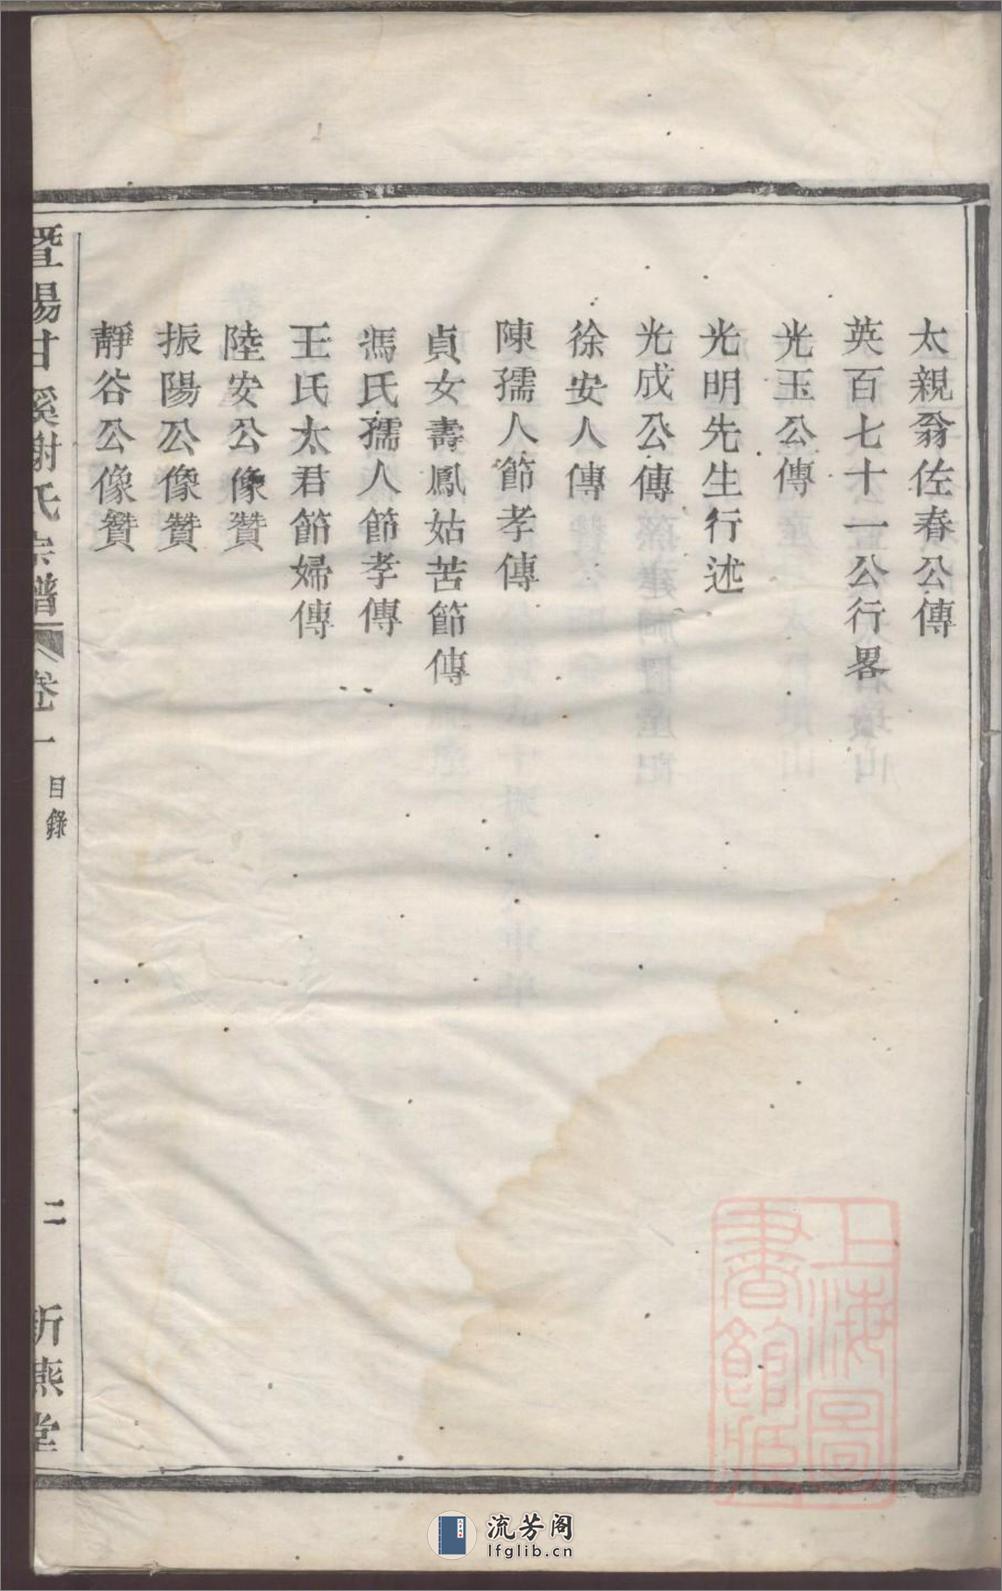 太親翁佐春公傳
英百七十一公行畧
光玉公傳
光明先生行述
光成公傳
徐安人傳
陳孺人節孝傳
貞女壽鳳姑苦節傳
馮氏孺人節孝傳
王氏太君節婦傳
陸安公像贊
振陽公像贊
靜谷公像贊
暨陽甘溪謝氏宗譜 卷一 目錄 二 新燕堂
上海圖書館藏
流芳阁
lfglib.cn